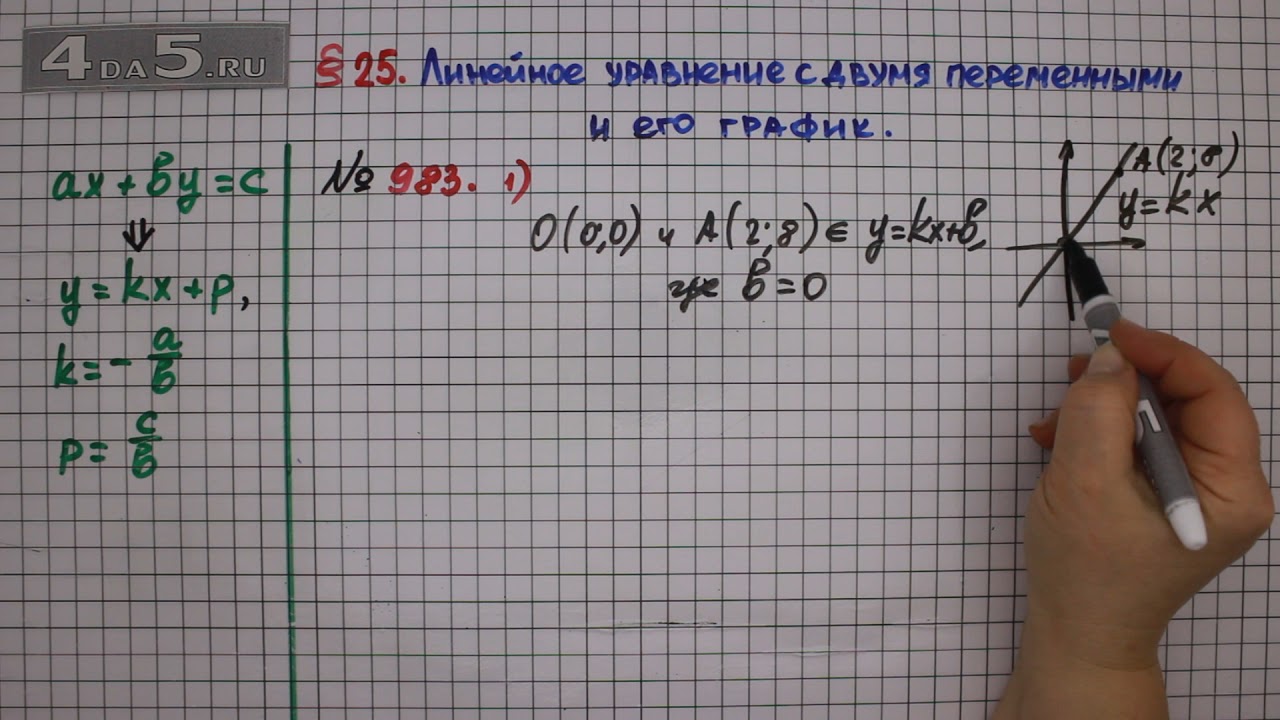 4DA5.RU
§ 25. Линейное уравнение с двумя переменными
и его график.
ax + by = c
⇓
y = kx + p,
k = - a/b
p = c/b
№ 983. 1)
O(0;0) и A(2;8) ∈ y=kx+b,
где b = 0
A(2;8)
y = kx